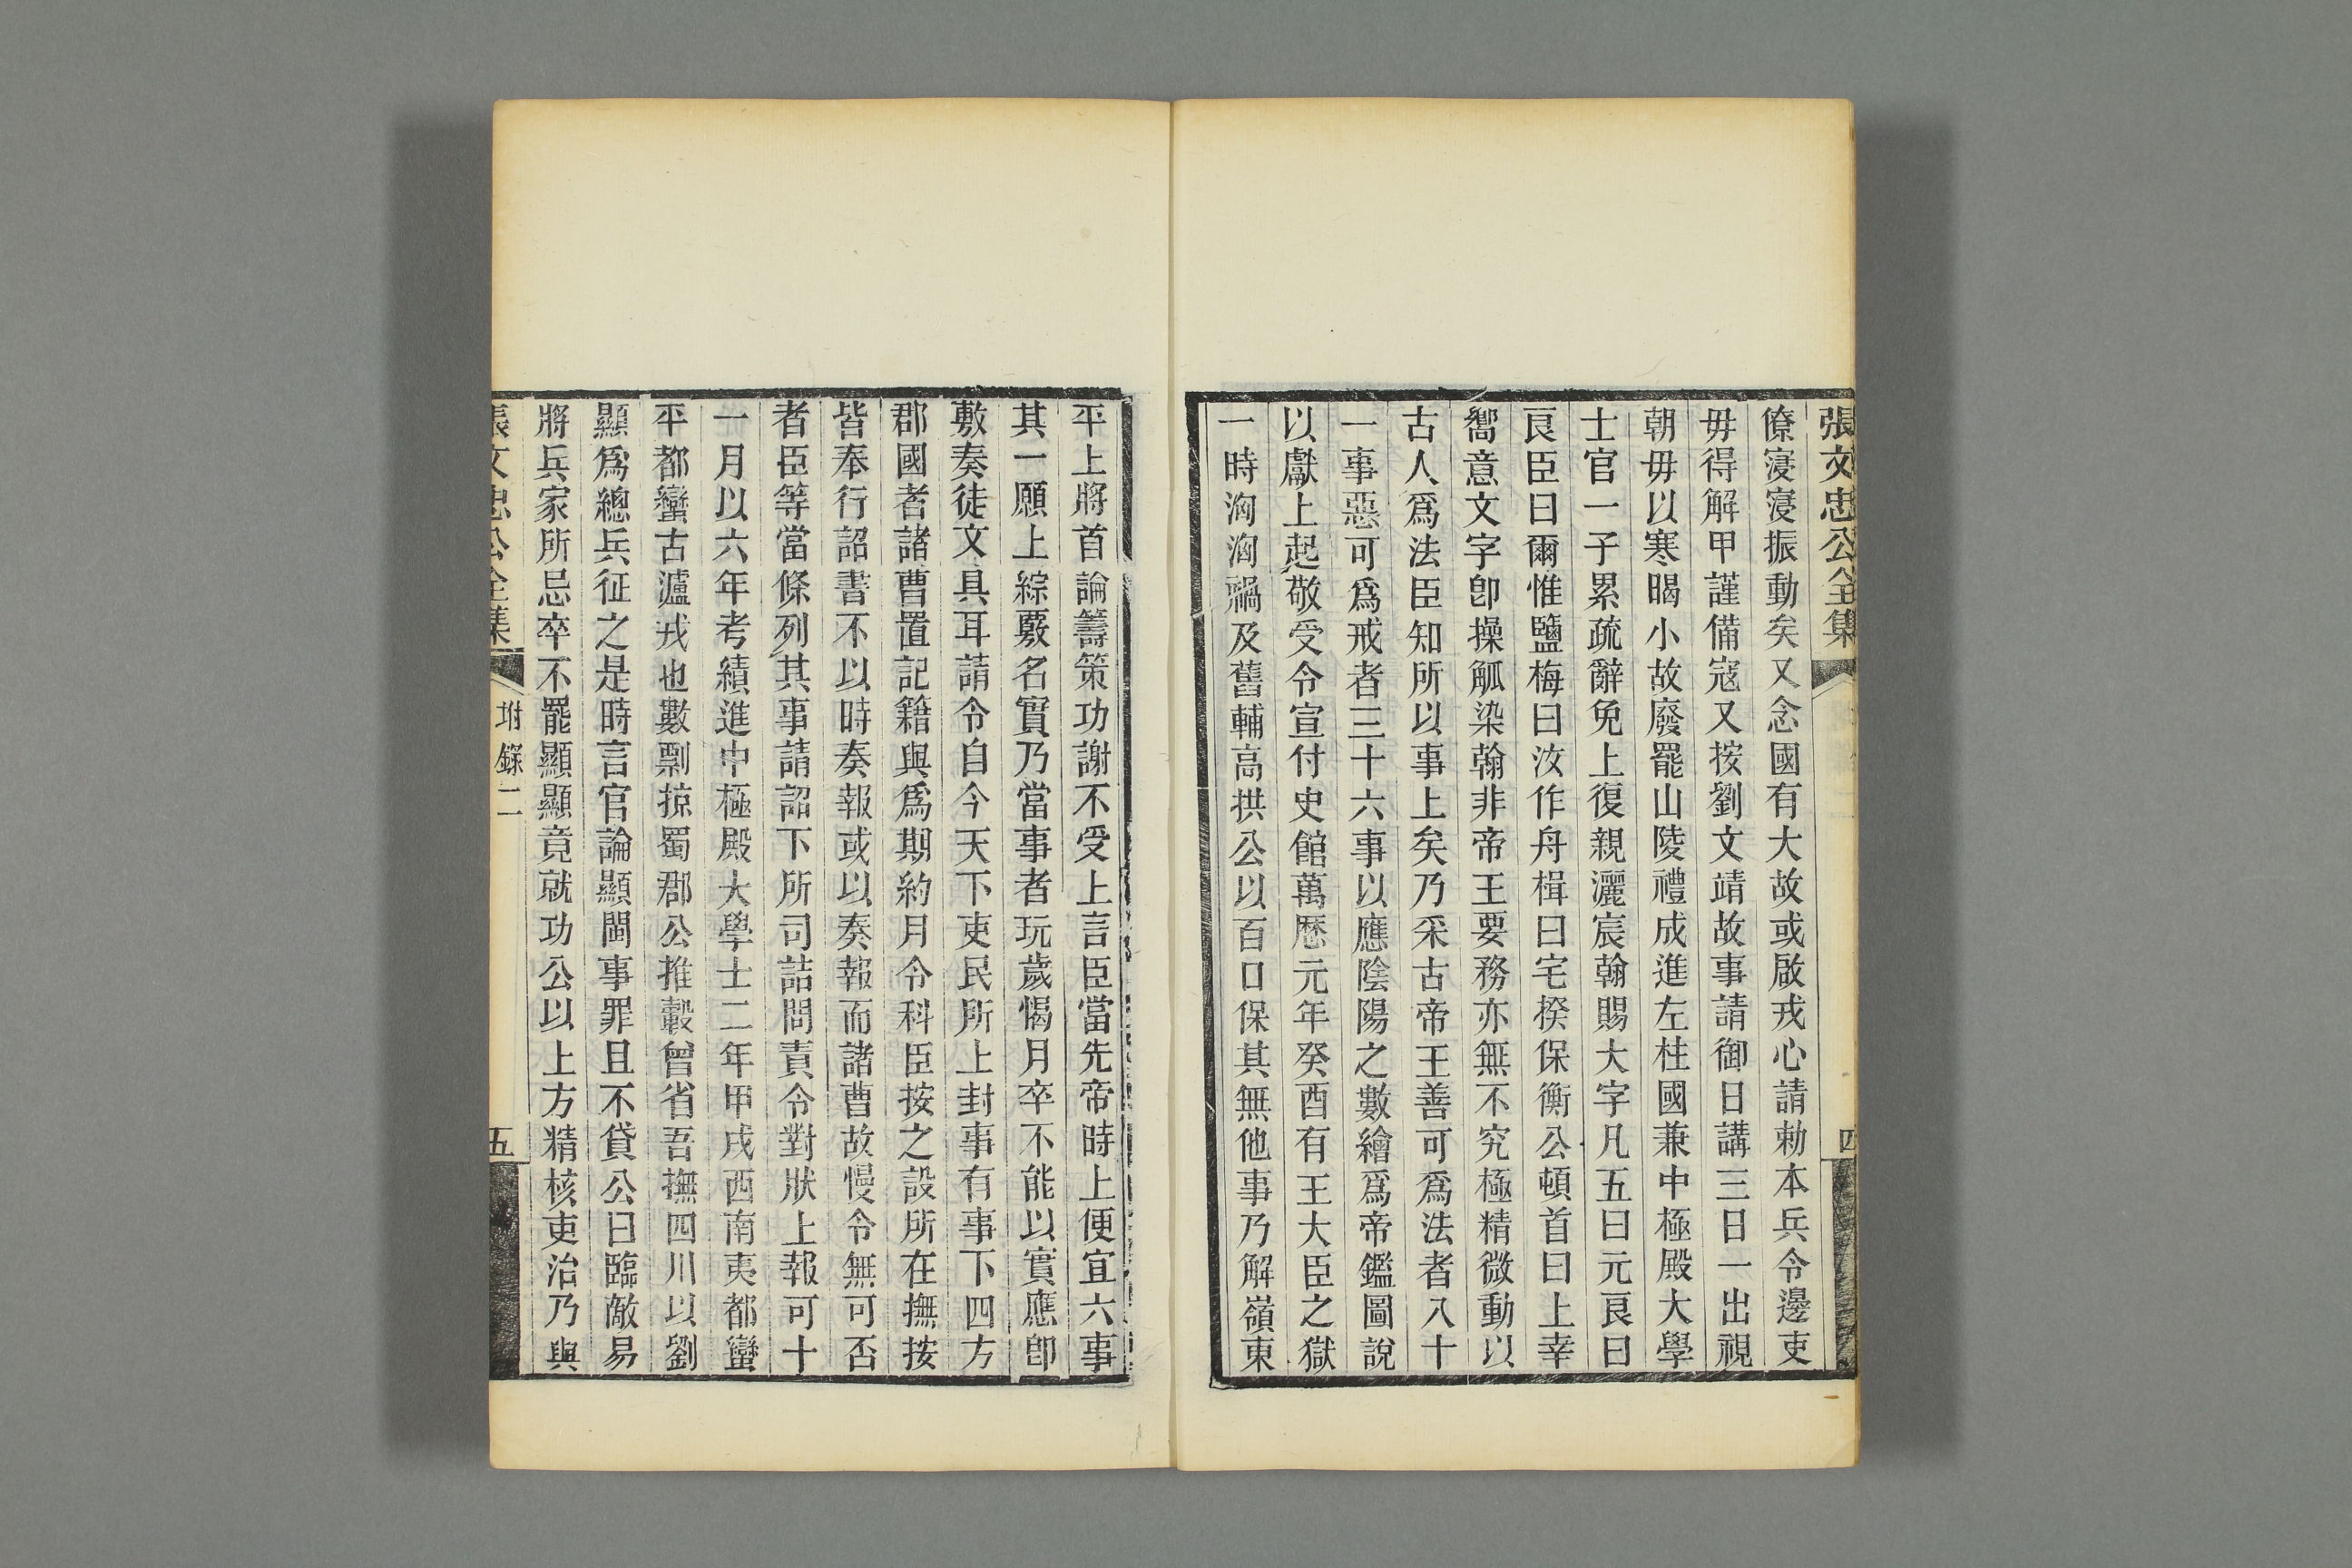 張文忠公全集
四
僚寖寖振動矣又念國有大故或啟戎心請勅本兵令邊吏
毋得解甲謹備寇又按劉文靖故事請御日講三日一出視
朝毋以寒暍小故廢罷山陵禮成進左柱國兼中極殿大學
士官一子累疏辭免上復親灑宸翰賜大字凡五曰元良曰
良臣曰爾惟鹽梅曰汝作舟楫曰宅揆保衡公頓首曰上幸
嚮意文字卽操觚染翰非帝王要務亦無不究極精微動以
古人爲法臣知所以事上矣乃采古帝王善可爲法者八十
一事惡可爲戒者三十六事以應陰陽之數繪爲帝鑑圖說
以獻上起敬受令宣付史館萬歷元年癸酉有王大臣之獄
一時洶洶禍及舊輔高拱公以百口保其無他事乃解嶺東
平上將首論籌策功謝不受上言臣當先帝時上便宜六事
其一願上綜覈名實乃當事者玩歲愒月卒不能以實應卽
敷奏徒文具耳請令自今天下吏民所上封事有事下四方
郡國者諸曹置記籍與爲期約月令科臣按之設所在撫按
皆奉行詔書不以時奏報或以奏報而諸曹故慢令無可否
者臣等當條列其事請詔下所司詰問責令對狀上報可十
一月以六年考績進中極殿大學士二年甲戌西南夷都蠻
平都蠻古瀘戎也數剽掠蜀郡公推轂曾省吾撫四川以劉
顯爲總兵征之是時言官論顯閩事罪且不貸公曰臨敵易
將兵家所忌卒不罷顯顯竟就功公以上方精核吏治乃與
張文忠公全集
坿錄二
五